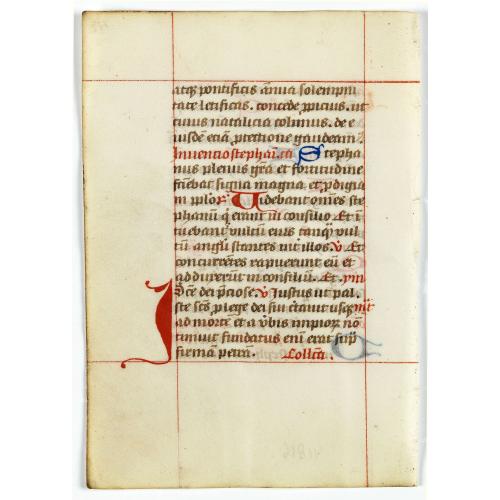 atq; pontificis annua solempni
tate letificas. concede ppicius. ut
cuius natalicia colimus. de e
iusdē eciā ptectione gaudeam⁹.
Inuencio stephani. ca Stepha
nus plenus grā et fortitudine
faciebat signa magna et pdigia
in pplo. r̄ Uidebant omnes ste
phanū q̇ erant in consilio Et ī
uebant vultum eius tanq̄ vul
tū angli stantes int illos. v Et
concurrētes rapuerunt eū et
adduxerūt in consiliū. Et
dce dei pciose. v Iustus ut pal.
Iste scūs p lege dei sui ctauit usq;
ad mortē et a ṽbis impioꝝ nō
timuit fundatus enī erat sup
firmam petrā. Collcā